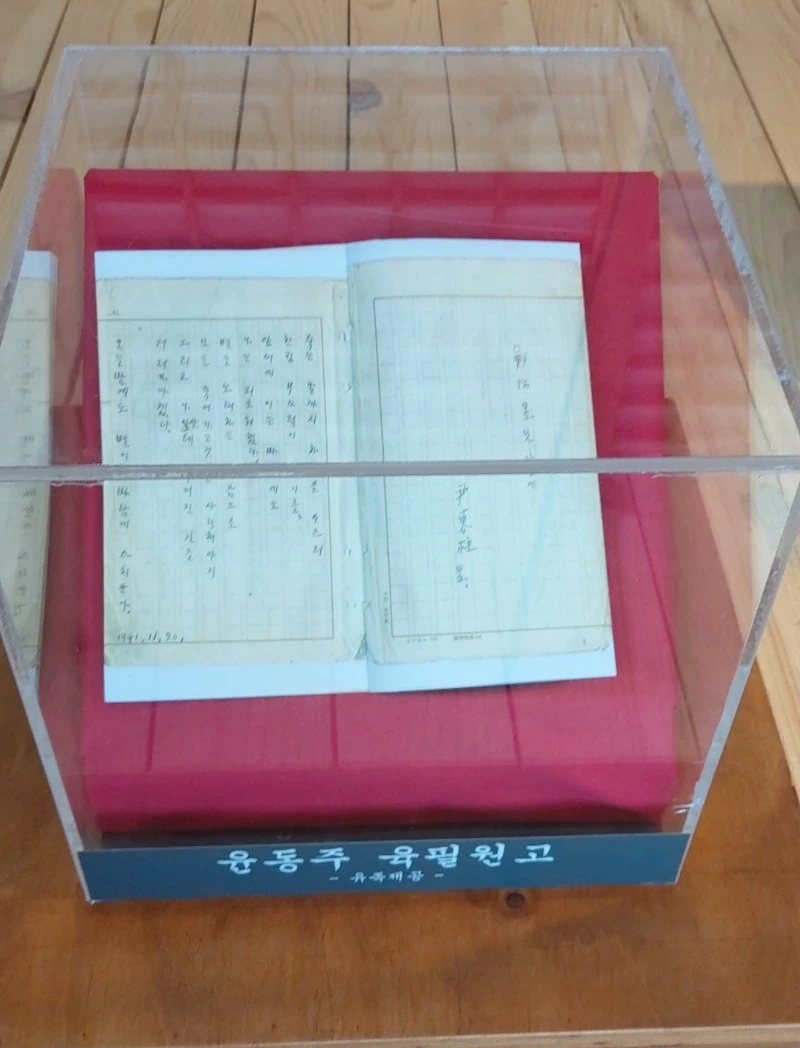 尹東柱 呈.
죽는 날까지 하늘을 우러러
한점 부끄럼이
잎새에 이는 바람에도
나는 괴로워했다.
별을 노래하는
모든 죽어가는것을 사랑해야지
그리고 나안테 길을
거러가야겠다.
오늘밤에도 별이 바람에 스치운다.
1941.11.20.
윤동주 육필원고
- 유족제공 -